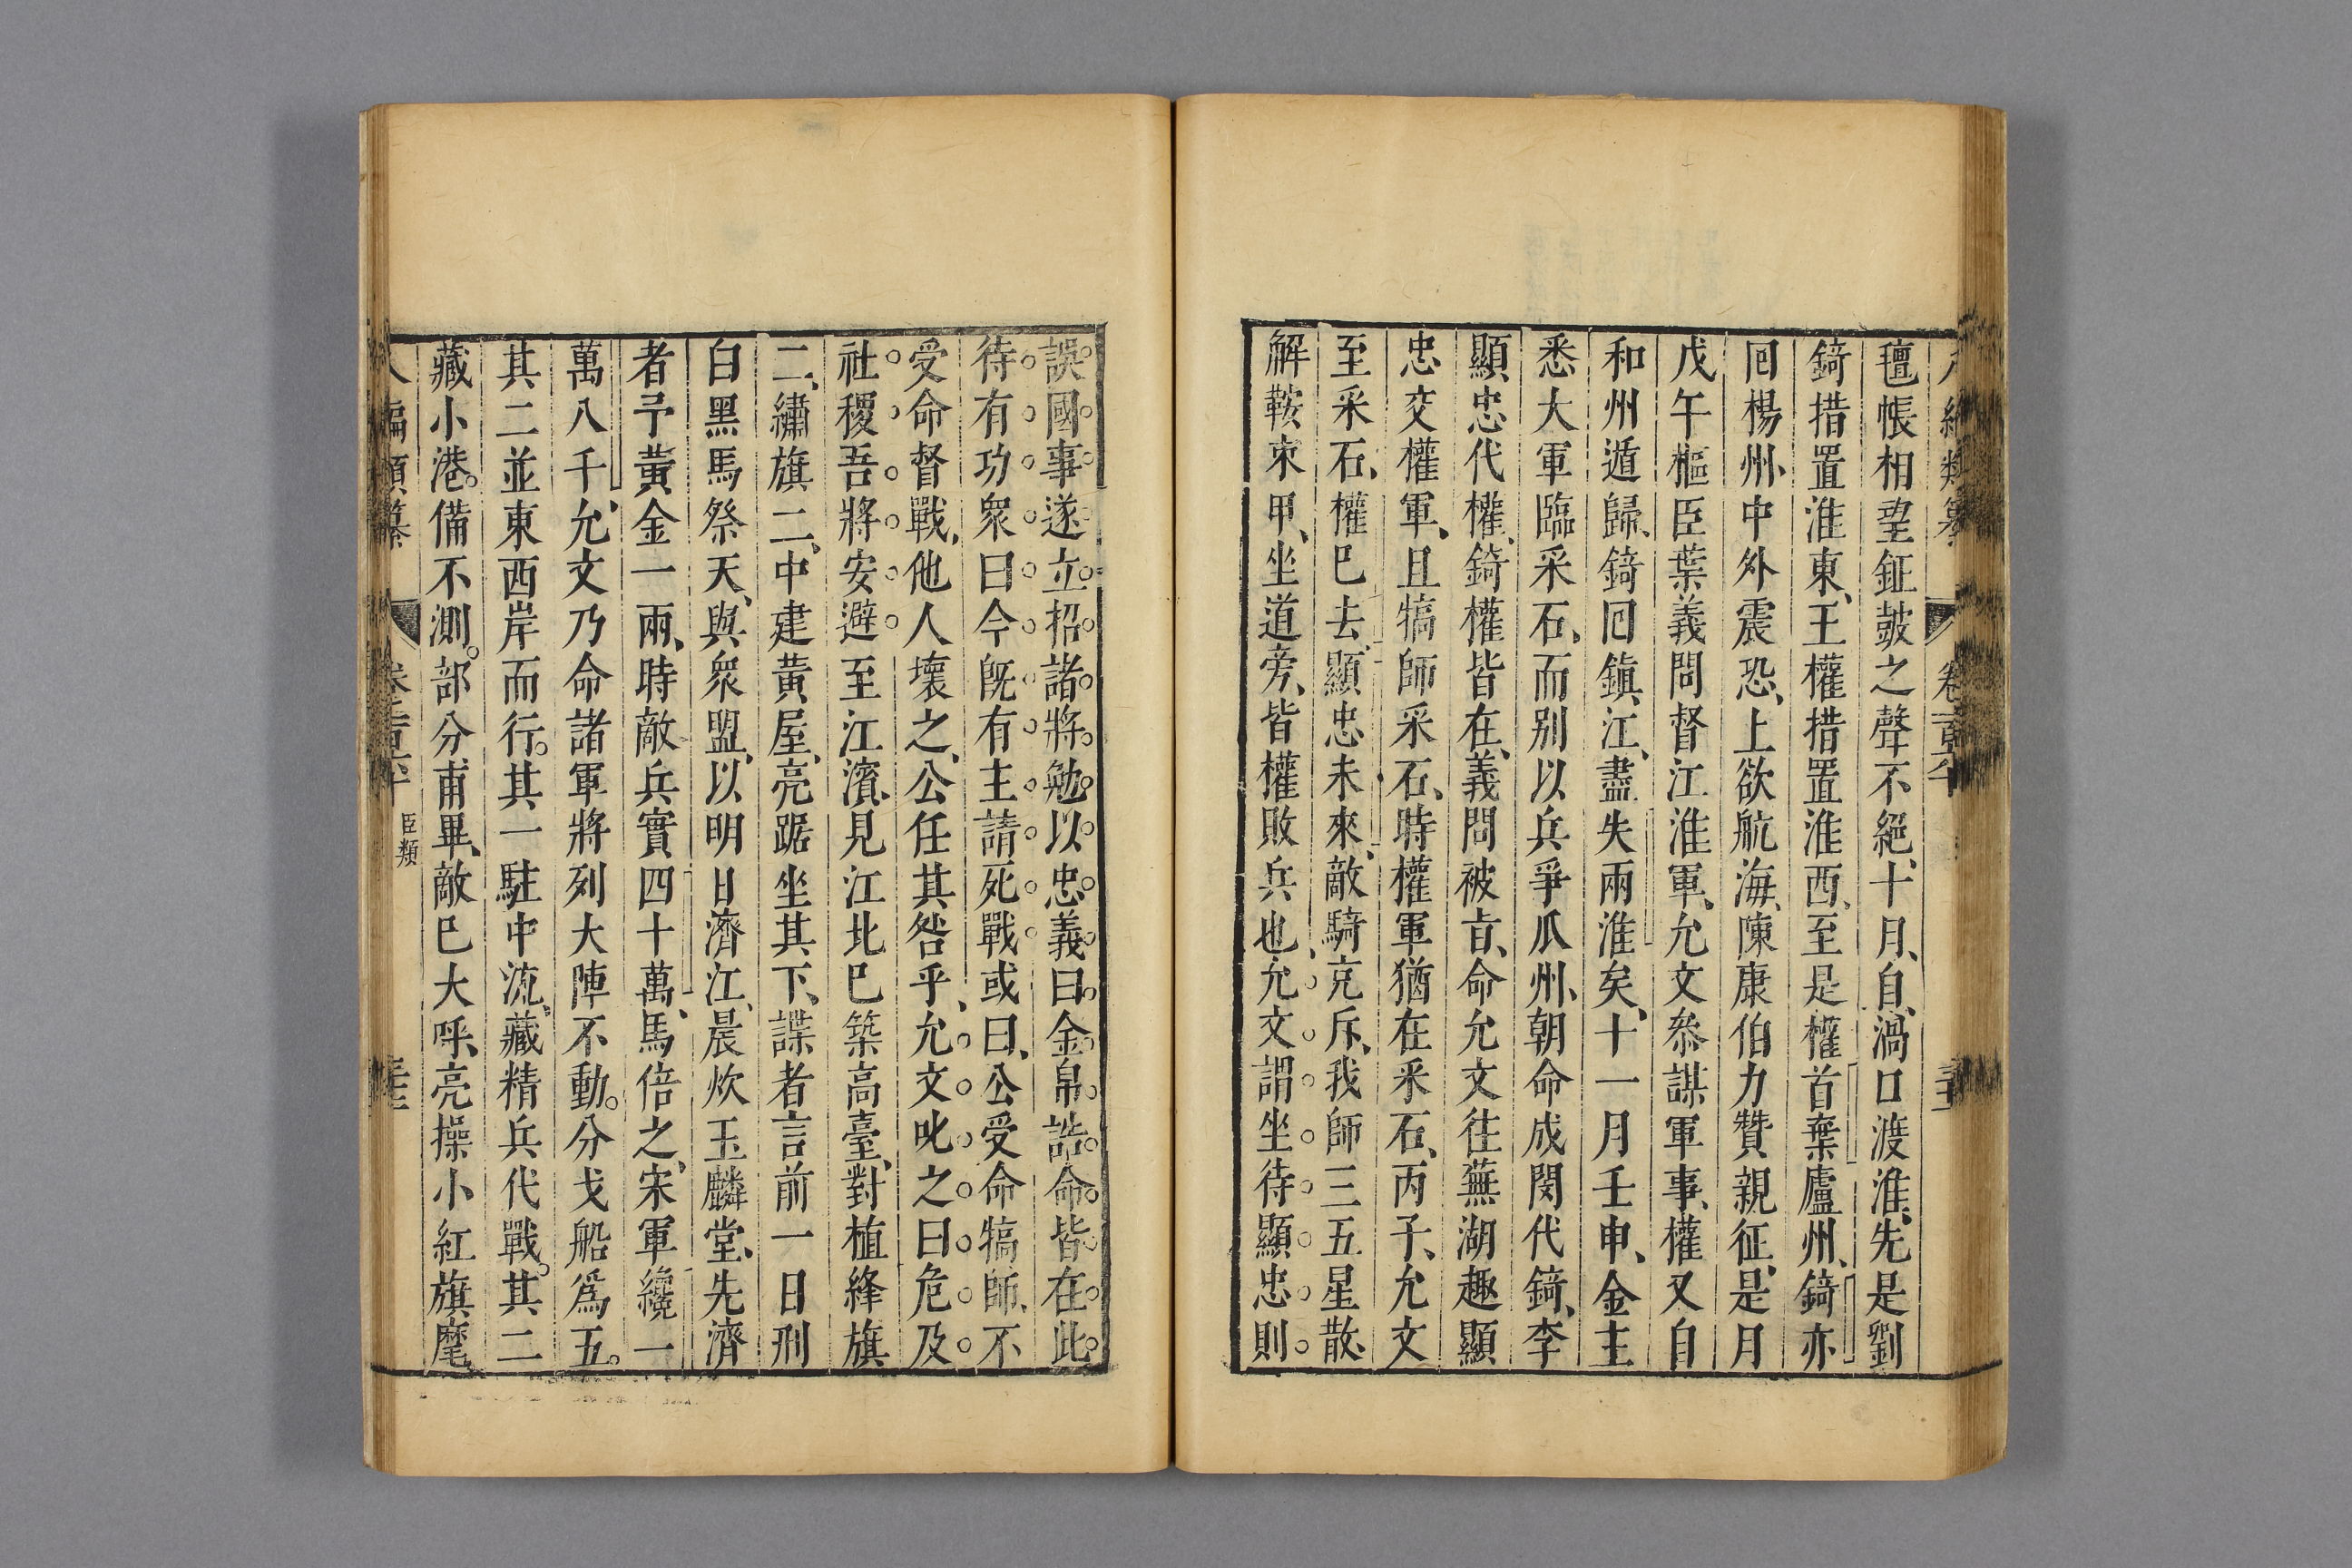 氊帳相望鉦鼓之聲不絕、十月、自渦口渡淮、先是劉
錡措置淮東、王權措置淮西、至是權首棄廬州、錡亦
囘楊州、中外震恐、上欲航海、陳康伯力贊親征、是月
戊午樞臣葉義問督江淮軍、允文叅謀軍事、權又自
和州遁歸、錡囘鎮江、盡失兩淮矣、十一月壬申、金主
悉大軍臨采石、而别以兵爭瓜州、朝命成閔代錡、李
顯忠代權、錡權皆在、義問被㫖、命允文徃蕪湖趣顯
忠交權軍、且犒師采石、時權軍猶在采石、丙子、允文
至采石、權巳去、顯忠未來、敵騎充斥、我師三五星散、
解鞍束甲、坐道旁、皆權敗兵也、允文謂坐待顯忠則
誤國事遂立招諸將勉以忠義曰金帛誥命皆在此
待有功衆曰今旣有主請死戰或曰、公受命犒師、不
受命督戰、他人壞之、公任其咎乎、允文叱之曰危及
社稷吾將安避至江濱、見江北巳築高臺、對植絳旗
二、繡旗二、中建黃屋、亮踞坐其下、諜者言前一日刑
白黑馬祭天、與衆盟、以明日濟江、晨炊玉麟堂、先濟
者予黃金一兩、時敵兵實四十萬、馬倍之、宋軍纔一
萬八千、允文乃命諸軍將列大陣不動。分戈船爲五。
其二並東西岸而行。其一駐中流、藏精兵代戰。其二
藏小港。備不測。部分甫畢、敵巳大呼、亮操小紅旗麾
臣類